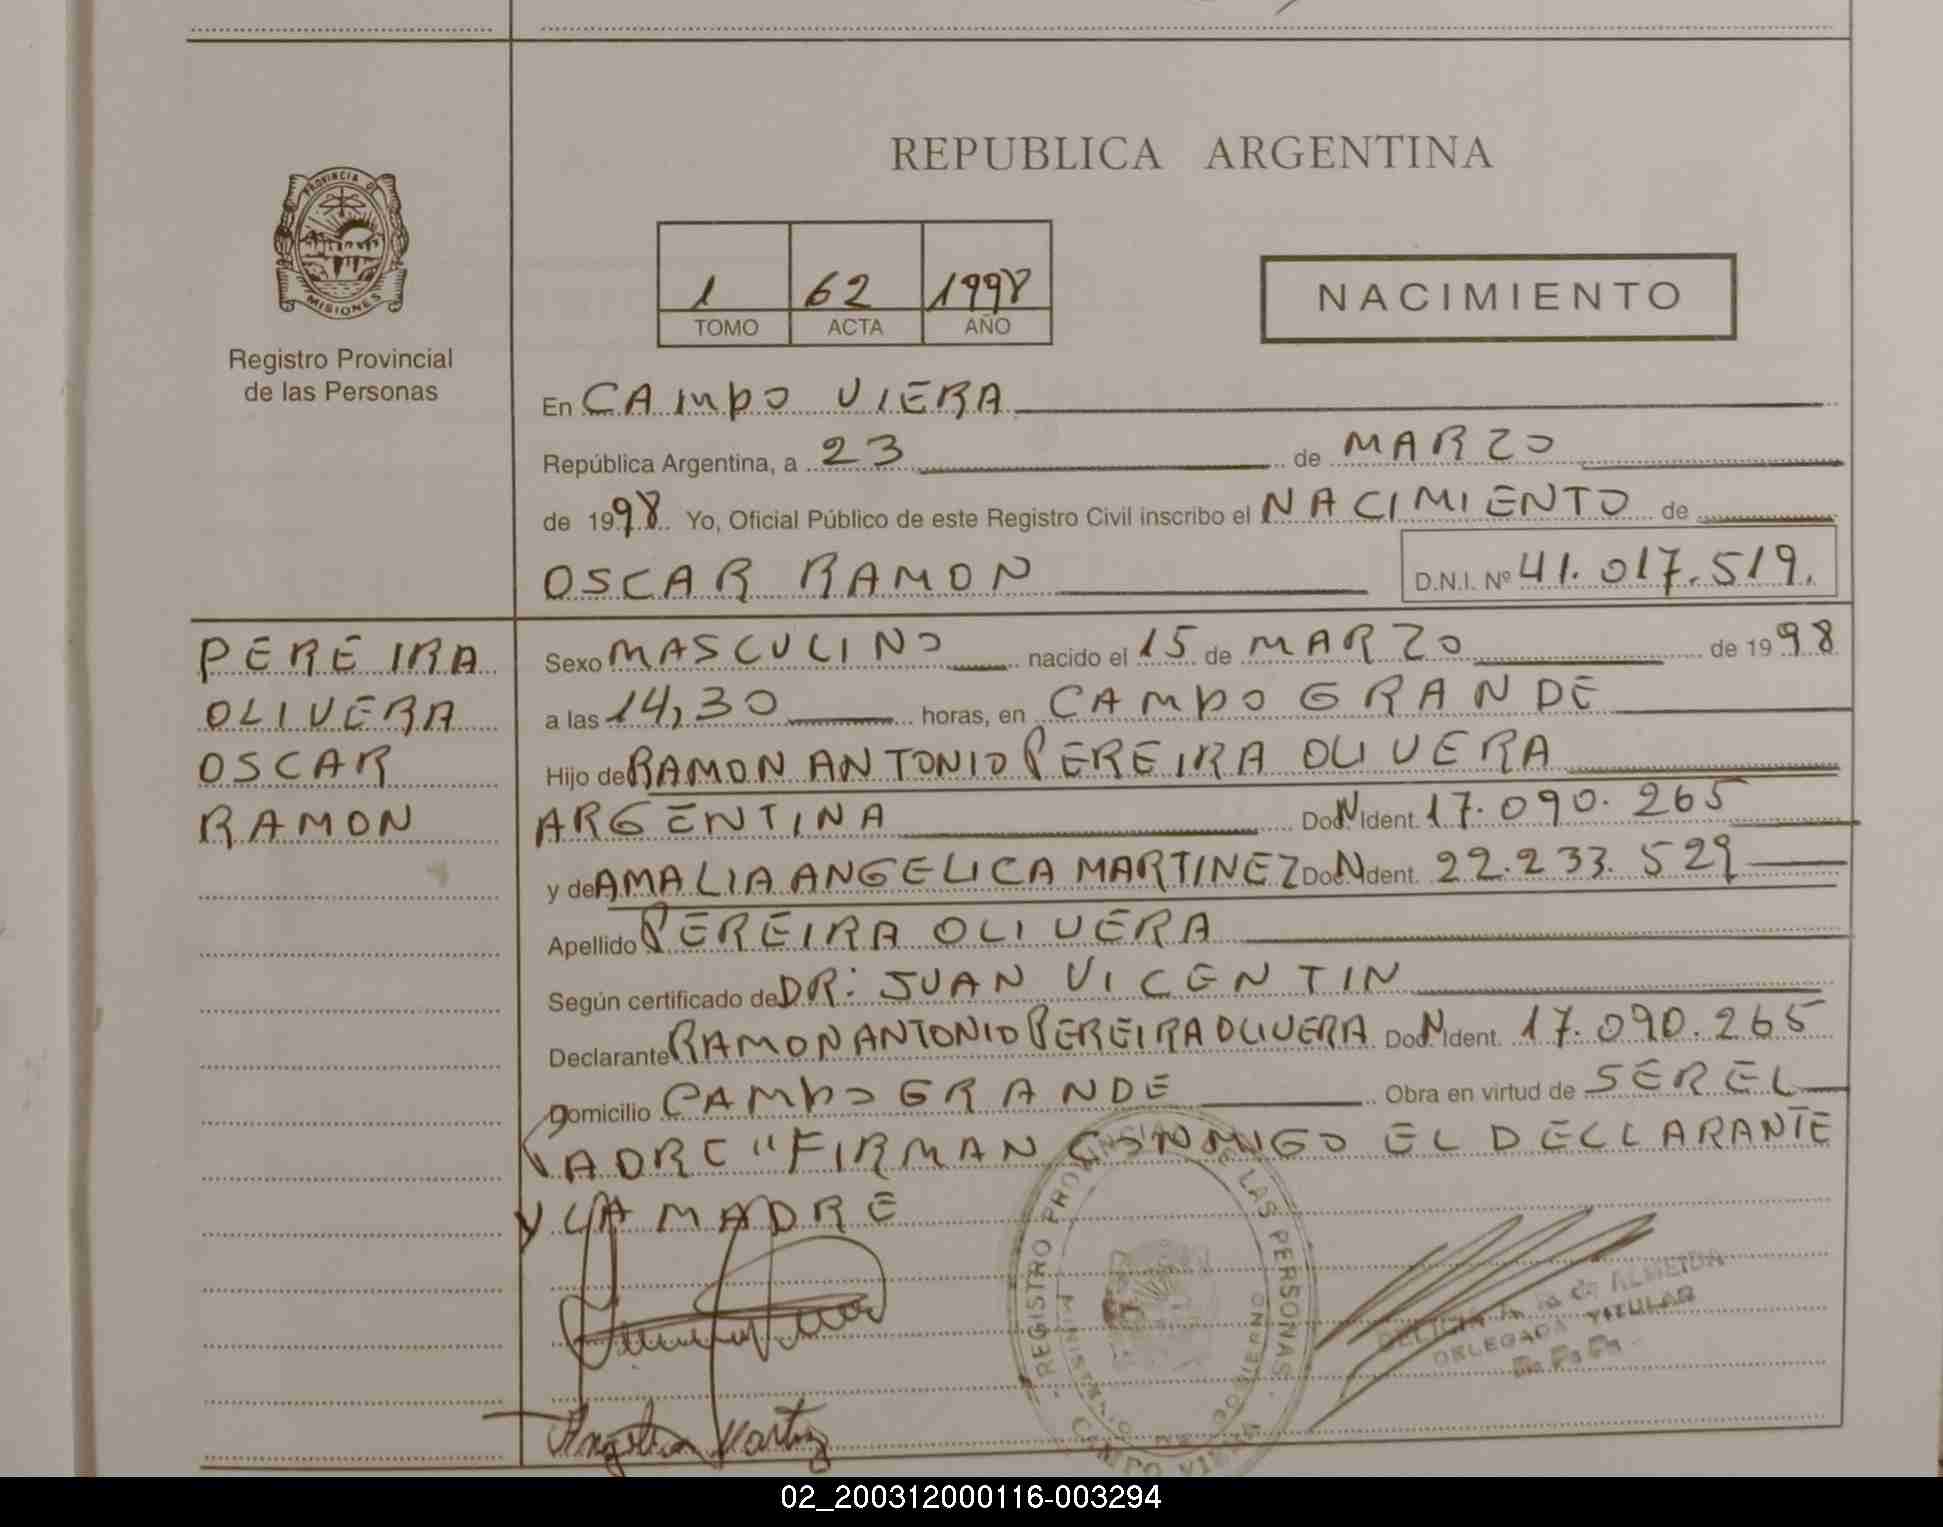 REPUBLICA ARGENTINA
PROVINCIA DE
MISIONES
Registro Provincial
de las Personas
1 62 1998
TOMO ACTA AÑO
NACIMIENTO
En CAMPO VIERA
República Argentina, a 23 de MARZO
de 1998 Yo, Oficial Público de este Registro Civil inscribo el NACIMIENTO de
OSCAR RAMON D.N.I. Nº 41.017.519.
PEREIRA
OLIVERA
OSCAR
RAMON
Sexo MASCULINO nacido el 15 de MARZO de 1998
a las 14,30 horas, en CAMPO GRANDE
Hijo de RAMON ANTONIO PEREIRA OLIVERA
ARGENTINA Doc N Ident. 17.090.265
y de AMALIA ANGELICA MARTINEZ Doc N Ident. 22.233.529
Apellido PEREIRA OLIVERA
Según certificado de DR: JUAN VICENTIN
Declarante RAMON ANTONIO PEREIRA OLIVERA Doc N Ident. 17.090.265
Domicilio CAMPO GRANDE Obra en virtud de SER EL
PADRE "FIRMAN CONMIGO EL DECLARANTE
Y LA MADRE
REGISTRO PROVINCIAL DE LAS PERSONAS
MINISTERIO DE GOBIERNO
CAMPO VIERA
de ALMEIDA
DELEGADA TITULAR
Angelica Martinez
02_200312000116-003294